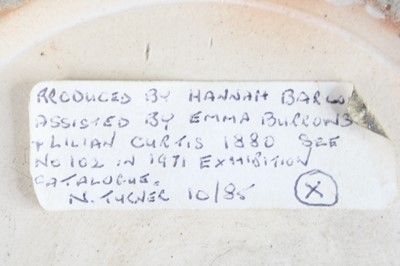 PRODUCED BY HANNAH BARLO
ASSISTED BY EMMA BURROWS
+ LILIAN CURTIS 1880 SEE
NO 102 IN 1971 EXHIBITION
CATALOGUE.
N. TURNER 10/85 X